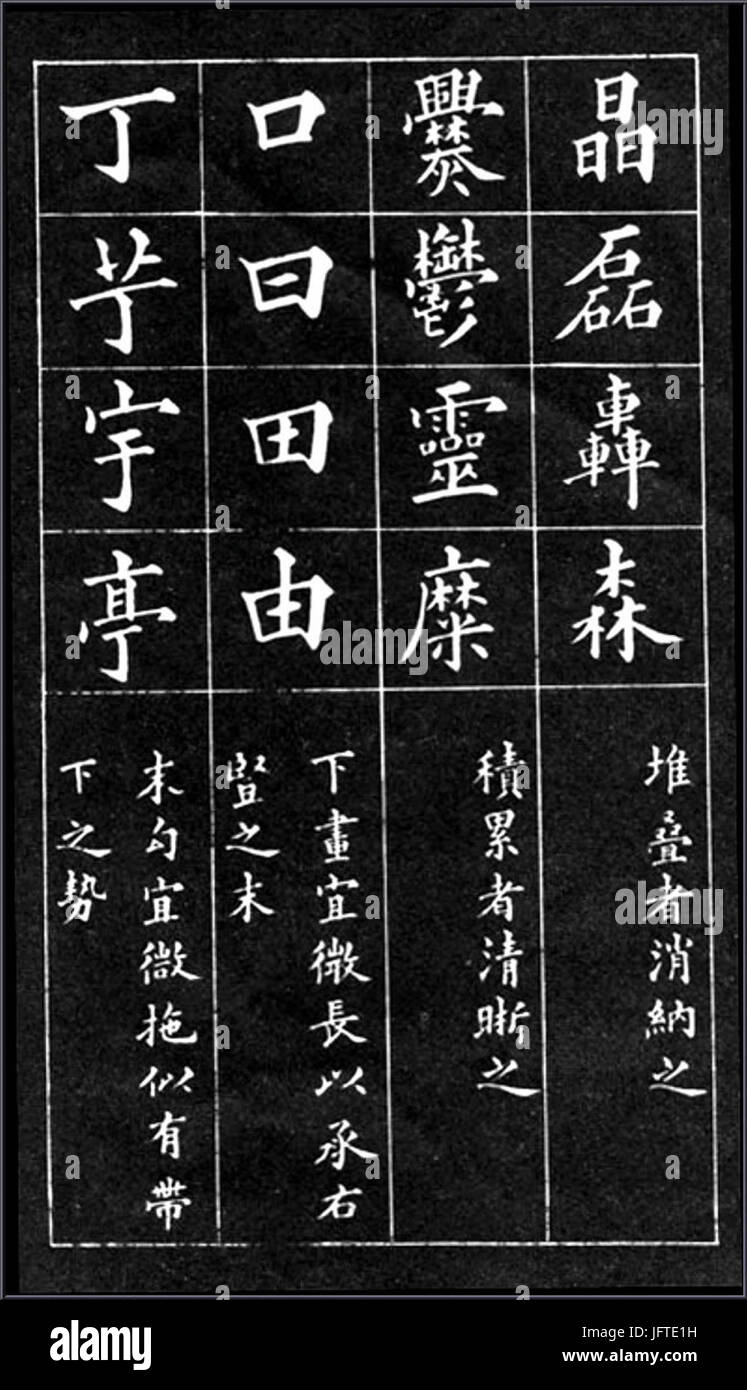 晶
磊
轟
森
堆疊者消納之
爨
鬱
靈
糜
積累者清晰之
口
曰
田
由
下畫宜微長以承右
豎之末
丁
芧
宇
亭
末勾宜微拖似有帶
下之勢
alamy
alamy
alamy
a
alamy
Image ID: JFTE1H
www.alamy.com